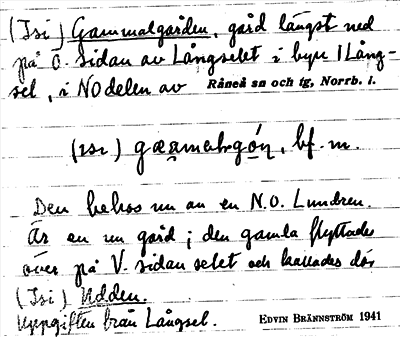 (Isi) Gammalgården, gård längst ned
på Ö. sidan av Långselet i byn Lång-
sel, i NO delen av Råneå sn och tg, Norrb. l.
bf. m.
Den bebos nu av en N.O. Lundgren.
Är en ung gård; den gamla flyttades
över på V. sidan selet och kallades där
(Isi) Udden.
Uppgiften från Långsel.
EDVIN BRÄNNSTRÖM 1941